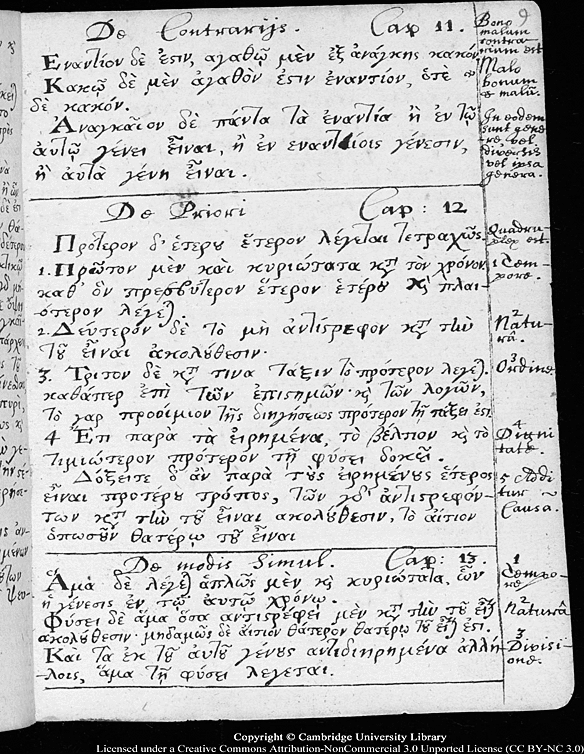 De Contrarijs. Cap 11. 9
Ἐναντίον δέ ἐστιν ἀγαθῷ μὲν ἐξ ἀνάγκης κακόν
Κακῷ δὲ μὲν ἀγαθὸν ἐστιν ἐναντίον, ὁτὲ
δὲ κακόν.
Ἀναγκαῖον δὲ πάντα τὰ ἐναντία ἢ ἐν τῷ
αὐτῷ γένει εἶναι, ἢ ἐν ἐναντίοις γένεσιν,
ἢ αὐτὰ γένη εἶναι.
Bono
malum
contra-
rium est
Malo
bonum
malū.
In eodem
sunt gene
re, vel
diversis
vel ipsa
genera.
De Priori Cap: 12
Πρότερον δ' ἑτέρου ἕτερον λέγεται τετραχῶς
1. Πρῶτον μὲν καὶ κυριώτατα κτ τὸν χρόνον
καθ' ὃν πρεσβύτερον ἕτερον ἑτέρου κὶ πλαι-
ότερον λέγε).
2. Δεύτερον δὲ τὸ μὴ ἀντίστρεφον κτ τὴν
τοῦ εἶναι ἀκολούθεσιν.
3. Τρίτον δὲ κτ τινα τάξιν τὸ πρότερον λέγε).
καθάπερ ἐπὶ τῶν ἐπιστημῶν κὶ τῶν λογῶν,
τὸ γαρ προοίμιον τῆς διηγήσεως πρότερον τῇ τάξει ἐστι
4 Ἔτι παρὰ τὰ εἰρημένα, τὸ βέλτιον κὶ τὸ
τιμιώτερον πρότερον τῇ φύσει δοκεῖ.
Δόξειε δ' ἂν παρὰ τοὺς εἰρημένους ἕτερος
εἶναι προτέρου τρόπος, τῶν γδ' ἀντιστρεφόν-
των κτ τὴν τοῦ εἶναι ἀκολούθεσιν, τὸ αἴτιον
ὁπωσοῦν θατέρῳ τοῦ εἶναι
Quadru
plex est.
1 Tem-
pore.
2
Natu-
râ.
3
Ordine
4
Digni
tate.
5 Addi
tur
Causa.
De modis Simul. Cap: 13.
Ἅμα δὲ λέγε) ἁπλῶς μὲν κὶ κυριώταλα, ὧν
ἡ γένεσις ἐν τῷ αὐτῷ χρόνῳ.
Φύσει δὲ ἅμα ὅσα ἀντιστρέφει μὲν κτ τὴν τοῦ εἶ)
ἀκολούθεσιν· μηδαμῶς δὲ αἴτιον θάτερον θατέρῳ τοῦ εἶ) ἐστι.
Καὶ τὰ ἐκ τοῦ αὐτοῦ γένους ἀντιδιῃρημένα ἀλλή-
λοις, ἅμα τῇ φύσει λεγεται.
1
Tempo-
re
2
Naturâ
3
Divisi-
one.
Copyright © Cambridge University Library
Licensed under a Creative Commons Attribution-NonCommercial 3.0 Unported License (CC BY-NC 3.0)